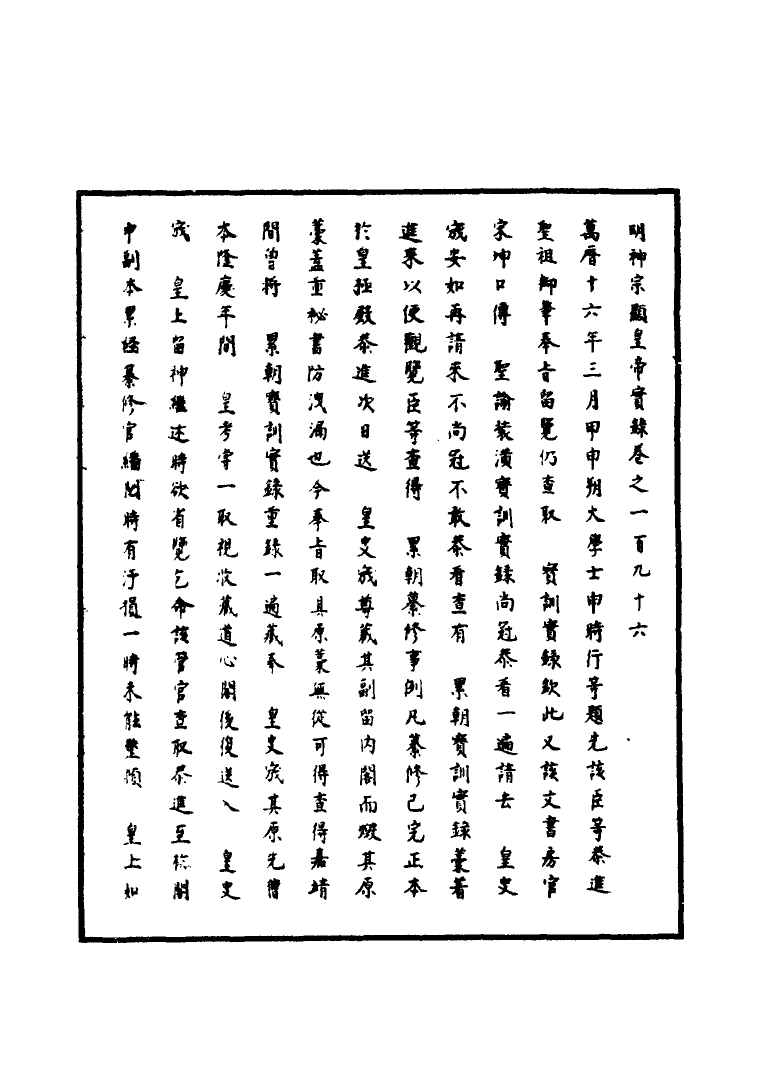 明神宗顯皇帝實錄卷之一百九十六
萬曆十六年三月甲申朔大學士申時行等題先該臣等恭進
聖祖御筆奉旨留覽仍查取　寶訓實錄欽此又該文書房官
宋坤口傳　聖諭裝潢寶訓實錄尚冠恭看一遍請去　皇史
宬安如再請來不尚冠不敢恭看查有　累朝寶訓實錄藁著
進來以便觀覽臣等查得　累朝纂修事例凡纂修已完正本
於皇極殿恭進次日送　皇史宬尊藏其副留內閣而燬其原
藁蓋重秘書防洩漏也今奉旨取具原藁無從可得查得嘉靖
間曾將　累朝寶訓實錄重錄一遍藏奉　皇史宬其原先謄
本隆慶年間　皇考常一取視收藏道心閣後復送入　皇史
宬　皇上留神繼述時欲省覽乞命該管官查取恭進至於閣
中副本累經纂修官繙閱時有汙損一時未能整頓　皇上如